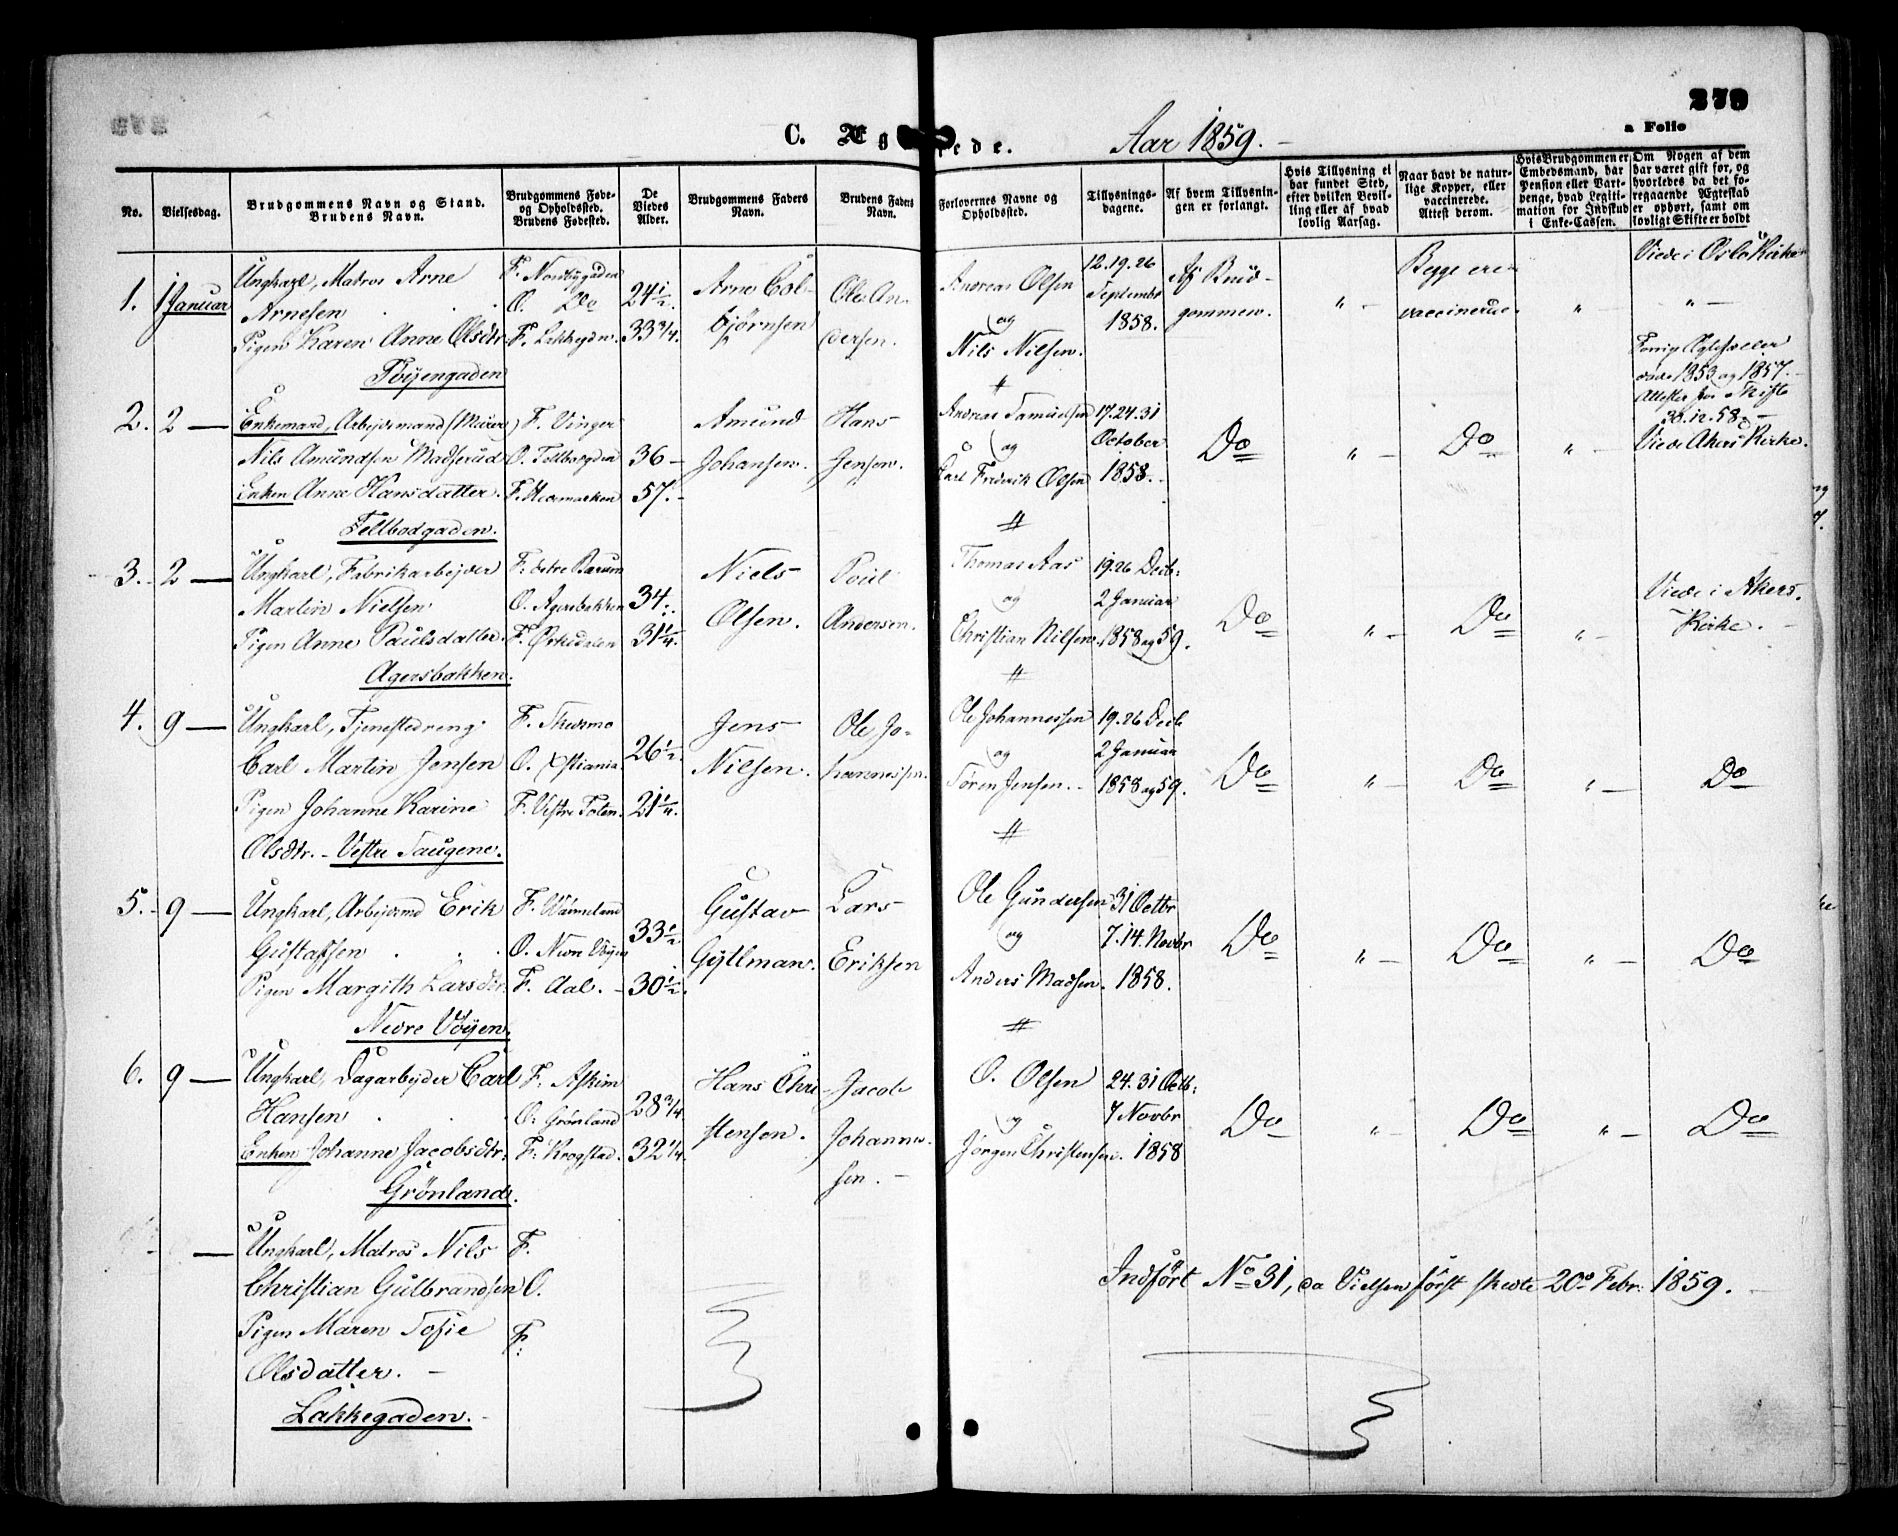 279
a Folio
C. Ægteviede. Aar 1859.
No.
Vielsesdag.
Brudgommens Navn og Stand.
Brudens Navn.
Brudgommens Føde-
og Opholdssted.
Brudens Fødested.
De
Viedes
Alder.
Brudgommens Faders
Navn.
Brudens Faders
Navn.
Forlovernes Navne og
Opholdssted.
Tillysnings-
dagene.
Af hvem Tillysnin-
gen er forlangt.
Hvis Tillysning ei
har fundet Sted,
efter hvilken Bevil-
ling eller af hvad
lovlig Aarsag.
Naar havt de natur-
lige Kopper, eller
vaccinerede.
Attest derom.
Hvis Brudgommen er
Embedsmand, har
Pension eller Vart-
penge, hvad Legiti-
mation for Indskud
i Enke-Cassen.
Om Nogen af dem
har været gift før, og
hvorledes da det fo-
regaaende Ægteskab
er ophørt, samt om
lovligt Skifte er holdt
1. 1 Januar
Ungkarl, Matros Arne
Arnesen
Pigen Karen Anne Olsdtr
Tøyengaden
F. Nordbygaden
O. Do
F. Lakkegdn.
24 1/2.
33 3/4.
Arne Col-
bjørnsen
Ole An-
dersen.
Andreas Olsen
og
Nils Nilsen.
12. 19. 26
Septembr
1858.
Af Brud-
gommen.
" —
Begge ere
vaccinerede.
" —
Viede i Oslo Kirke
" —
2. 2 —
Enkemand, Arbejdsmand (Murer)
Nils Amundsen Madserud
Enken Anne Hansdatter.
Telbodgaden.
F. Vinger
O. Telbodgden
F. Hedemarken
36 —
57. -
Amund
Johansen.
Hans
Jensen.
Andreas Samuelsen
og
Carl Frederik Olsen
17. 24. 31
October
1858.
Do
" —
Do
" —
Forrig Ægtefæller
døde 1853 og 1857.
Attester for Skifte
28.12.58.
Viede i Akers Kirke.
3. 2 —
Ungkarl, Fabrikarbejder
Martin Nielsen
Pigen Anne Paulsdatter.
Agersbakken.
F. østre Bærum
O. Agersbakken
F. Ørkedalen
34.
31 1/4.
Niels
Olsen.
Poul
Andersen.
Thomas Aas
og
Christian Nilsen.
19. 26 Decb:
2 Januar
1858 og 59.
Do
" —
Do
" —
Viede i Akers
Kirke.
4. 9 —
Ungkarl, Tjenestedreng
Carl Martin Jensen
Pigen Johanne Karine
Olsdtr. - Vestre Taugene.
O. Xstiania.
F. Vestre Toten.
26 1/2.
21 1/4.
Jens
Nilsen.
Ole Jo-
hannessen.
Ole Johannessen
og
Søren Jensen.
19. 26 Decb
2 Januar
1858 og 59.
Do
" —
Do
" —
Do
5. 9 —
Ungkarl, Arbejdsmd Erik
Gustafsen
Pigen Margith Larsdtr.
Nedre Vöyen.
F. Wärmeland
O. Nedre Vöyen
F. Aal. -
33 1/2.
30 1/2.
Gustav
Gyllman.
Lars
Eriksen
Ole Gundersen
og
Anders Madsen.
31 Octbr
7. 14. Novbr
1858.
Do
" —
Do
" —
Do
6. 9 —
Ungkarl, Dagarbejder Carl
Hansen
Enken Johanne Jacobsdtr.
Grönland.
F. Askim
O. Grönland
F. Krogstad.
28 3/4.
32 1/4.
Hans Chri-
stensen.
Jacob
Johanne-
sen. -
O. Olsen
og
Jørgen Christensen.
24. 31 Octb:
7 Novbr
1858
Do
" —
Do
" —
Do
—
Ungkarl, Matros Nils
Christian Gulbrandsen
Pigen Maren Sofie
Olsdatter. -
Lakkegaden.
F.
O.
F.
Indført No 31, da Vielsen først skede 20de Febr. 1859.